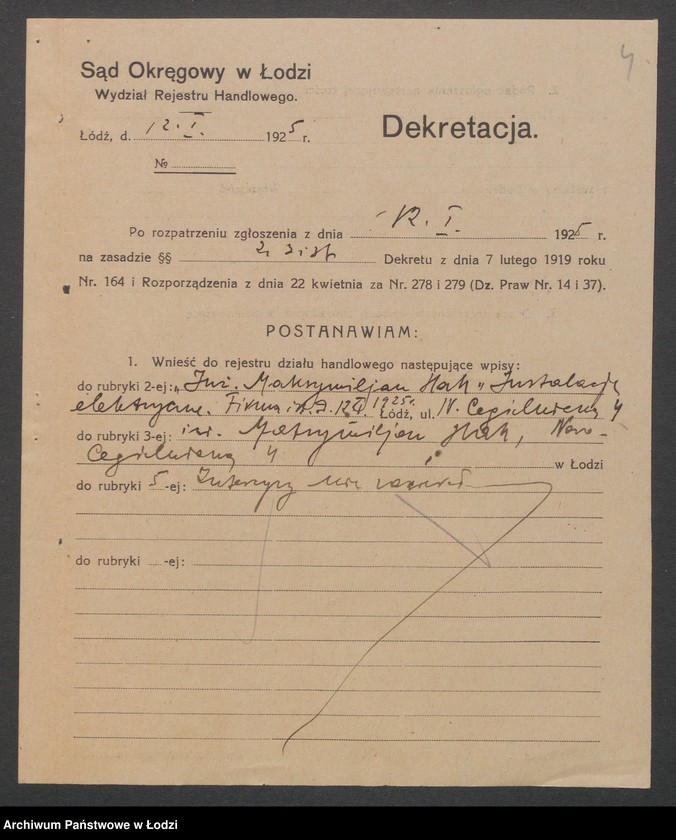 4.
Sąd Okręgowy w Łodzi
Wydział Rejestru Handlowego.
Łódź, d. 12. I. 1925 r.
Dekretacja.
№
Po rozpatrzeniu zgłoszenia z dnia 12. I. 1925 r.
na zasadzie §§ 2, 3 i Dekretu z dnia 7 lutego 1919 roku
Nr. 164 i Rozporządzenia z dnia 22 kwietnia za Nr. 278 i 279 (Dz. Praw Nr. 14 i 37).
POSTANAWIAM:
1. Wnieść do rejestru działu handlowego następujące wpisy:
do rubryki 2-ej: „Inż. Maksymiljan Hak" Instalacje
elektryczne. Firma 1925r. Łódź, ul. N. Cegielniana 4
do rubryki 3-ej: inż. Maksymiljan Hak, Nowo-
Cegielniana 4 w Łodzi
do rubryki 5-ej: Intercyzy nie zawarł
do rubryki -ej:
Archiwum Państwowe w Łodzi